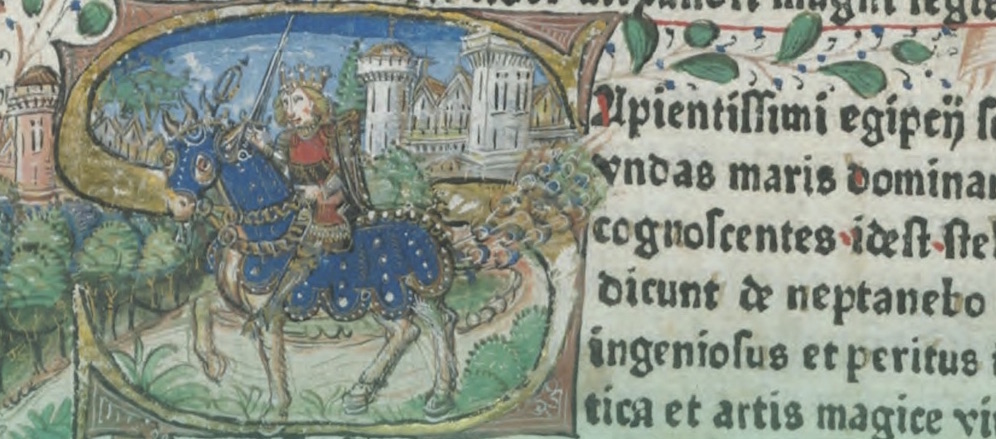 magni regis
apientissimi egiptij
vndas maris dominan
cognoscentes·idest·stel
dicunt de neptanebo
ingeniosus et peritus
tica et artis magice vir